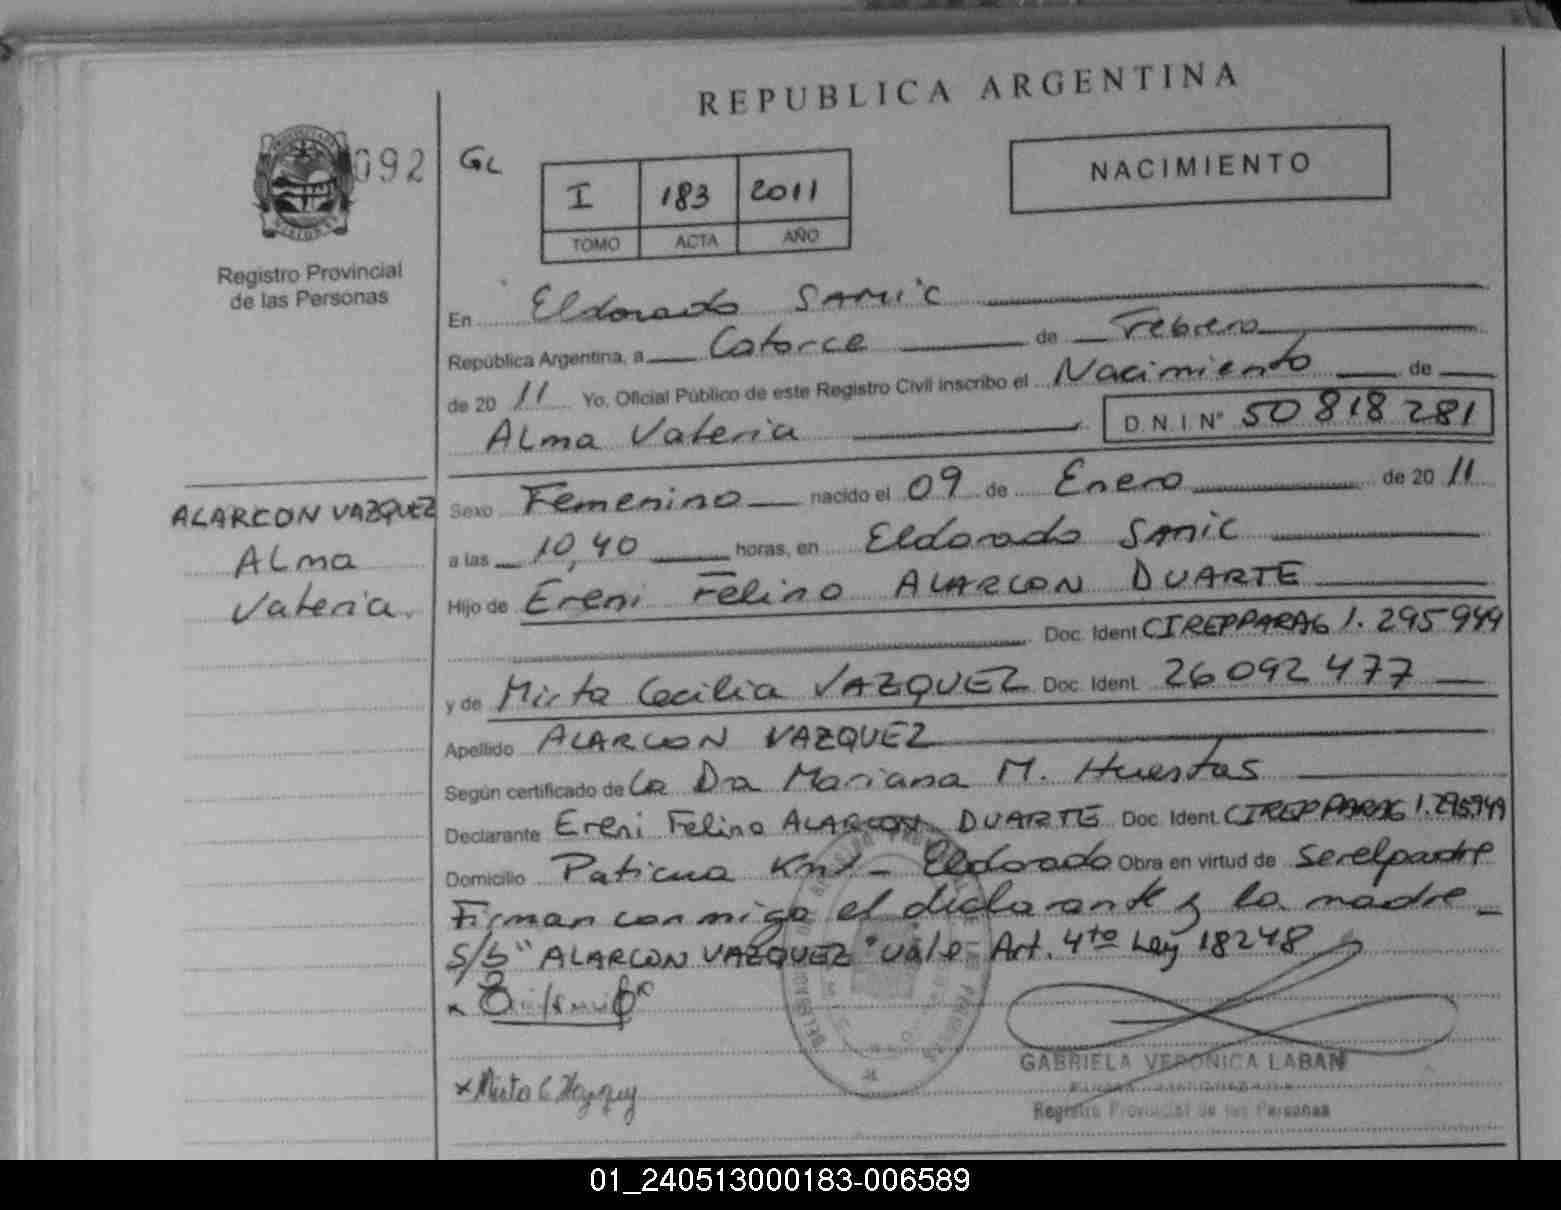 REPUBLICA ARGENTINA
092
GL
I 183 2011
TOMO ACTA AÑO
NACIMIENTO
Registro Provincial
de las Personas
En Eldorado SAMIC
República Argentina, a Catorce de Febrero
de 20 11 Yo, Oficial Público de este Registro Civil inscribo el Nacimiento de
Alma Valeria D.N.I. Nº 50 818 281
ALARCON VAZQUEZ
Alma
Valeria.
Sexo Femenino nacido el 09 de Enero de 20 11
a las 10,40 horas, en Eldorado SAMIC
Hijo de Ereni Felino ALARCON DUARTE
Doc. Ident. CIREPPARAG 1.295949
y de Mirta Cecilia VAZQUEZ Doc. Ident. 26092477
Apellido ALARCON VAZQUEZ
Según certificado de La Dra Mariana M. Huestas
Declarante Ereni Felino ALARCON DUARTE Doc. Ident. CIREPPARAG 1.295949
Domicilio Paticua Km - Eldorado Obra en virtud de ser el padre
Firman conmigo el declarante y la madre
S/B "ALARCON VAZQUEZ" vale Art. 4to Ley 18248
x
x Mirta C
GABRIELA VERONICA LABAN
Registro Provincial de las Personas
01_240513000183-006589